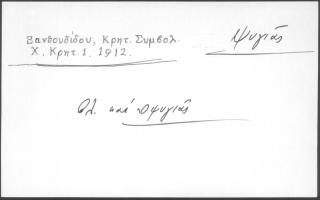 Ξανθουδίδου, Κρητ. Συμβολ.
Χ. Κρητ. 1. 1912.
Ἀψυγιᾶς
Βλ. καὶ ὀψυγιᾶς